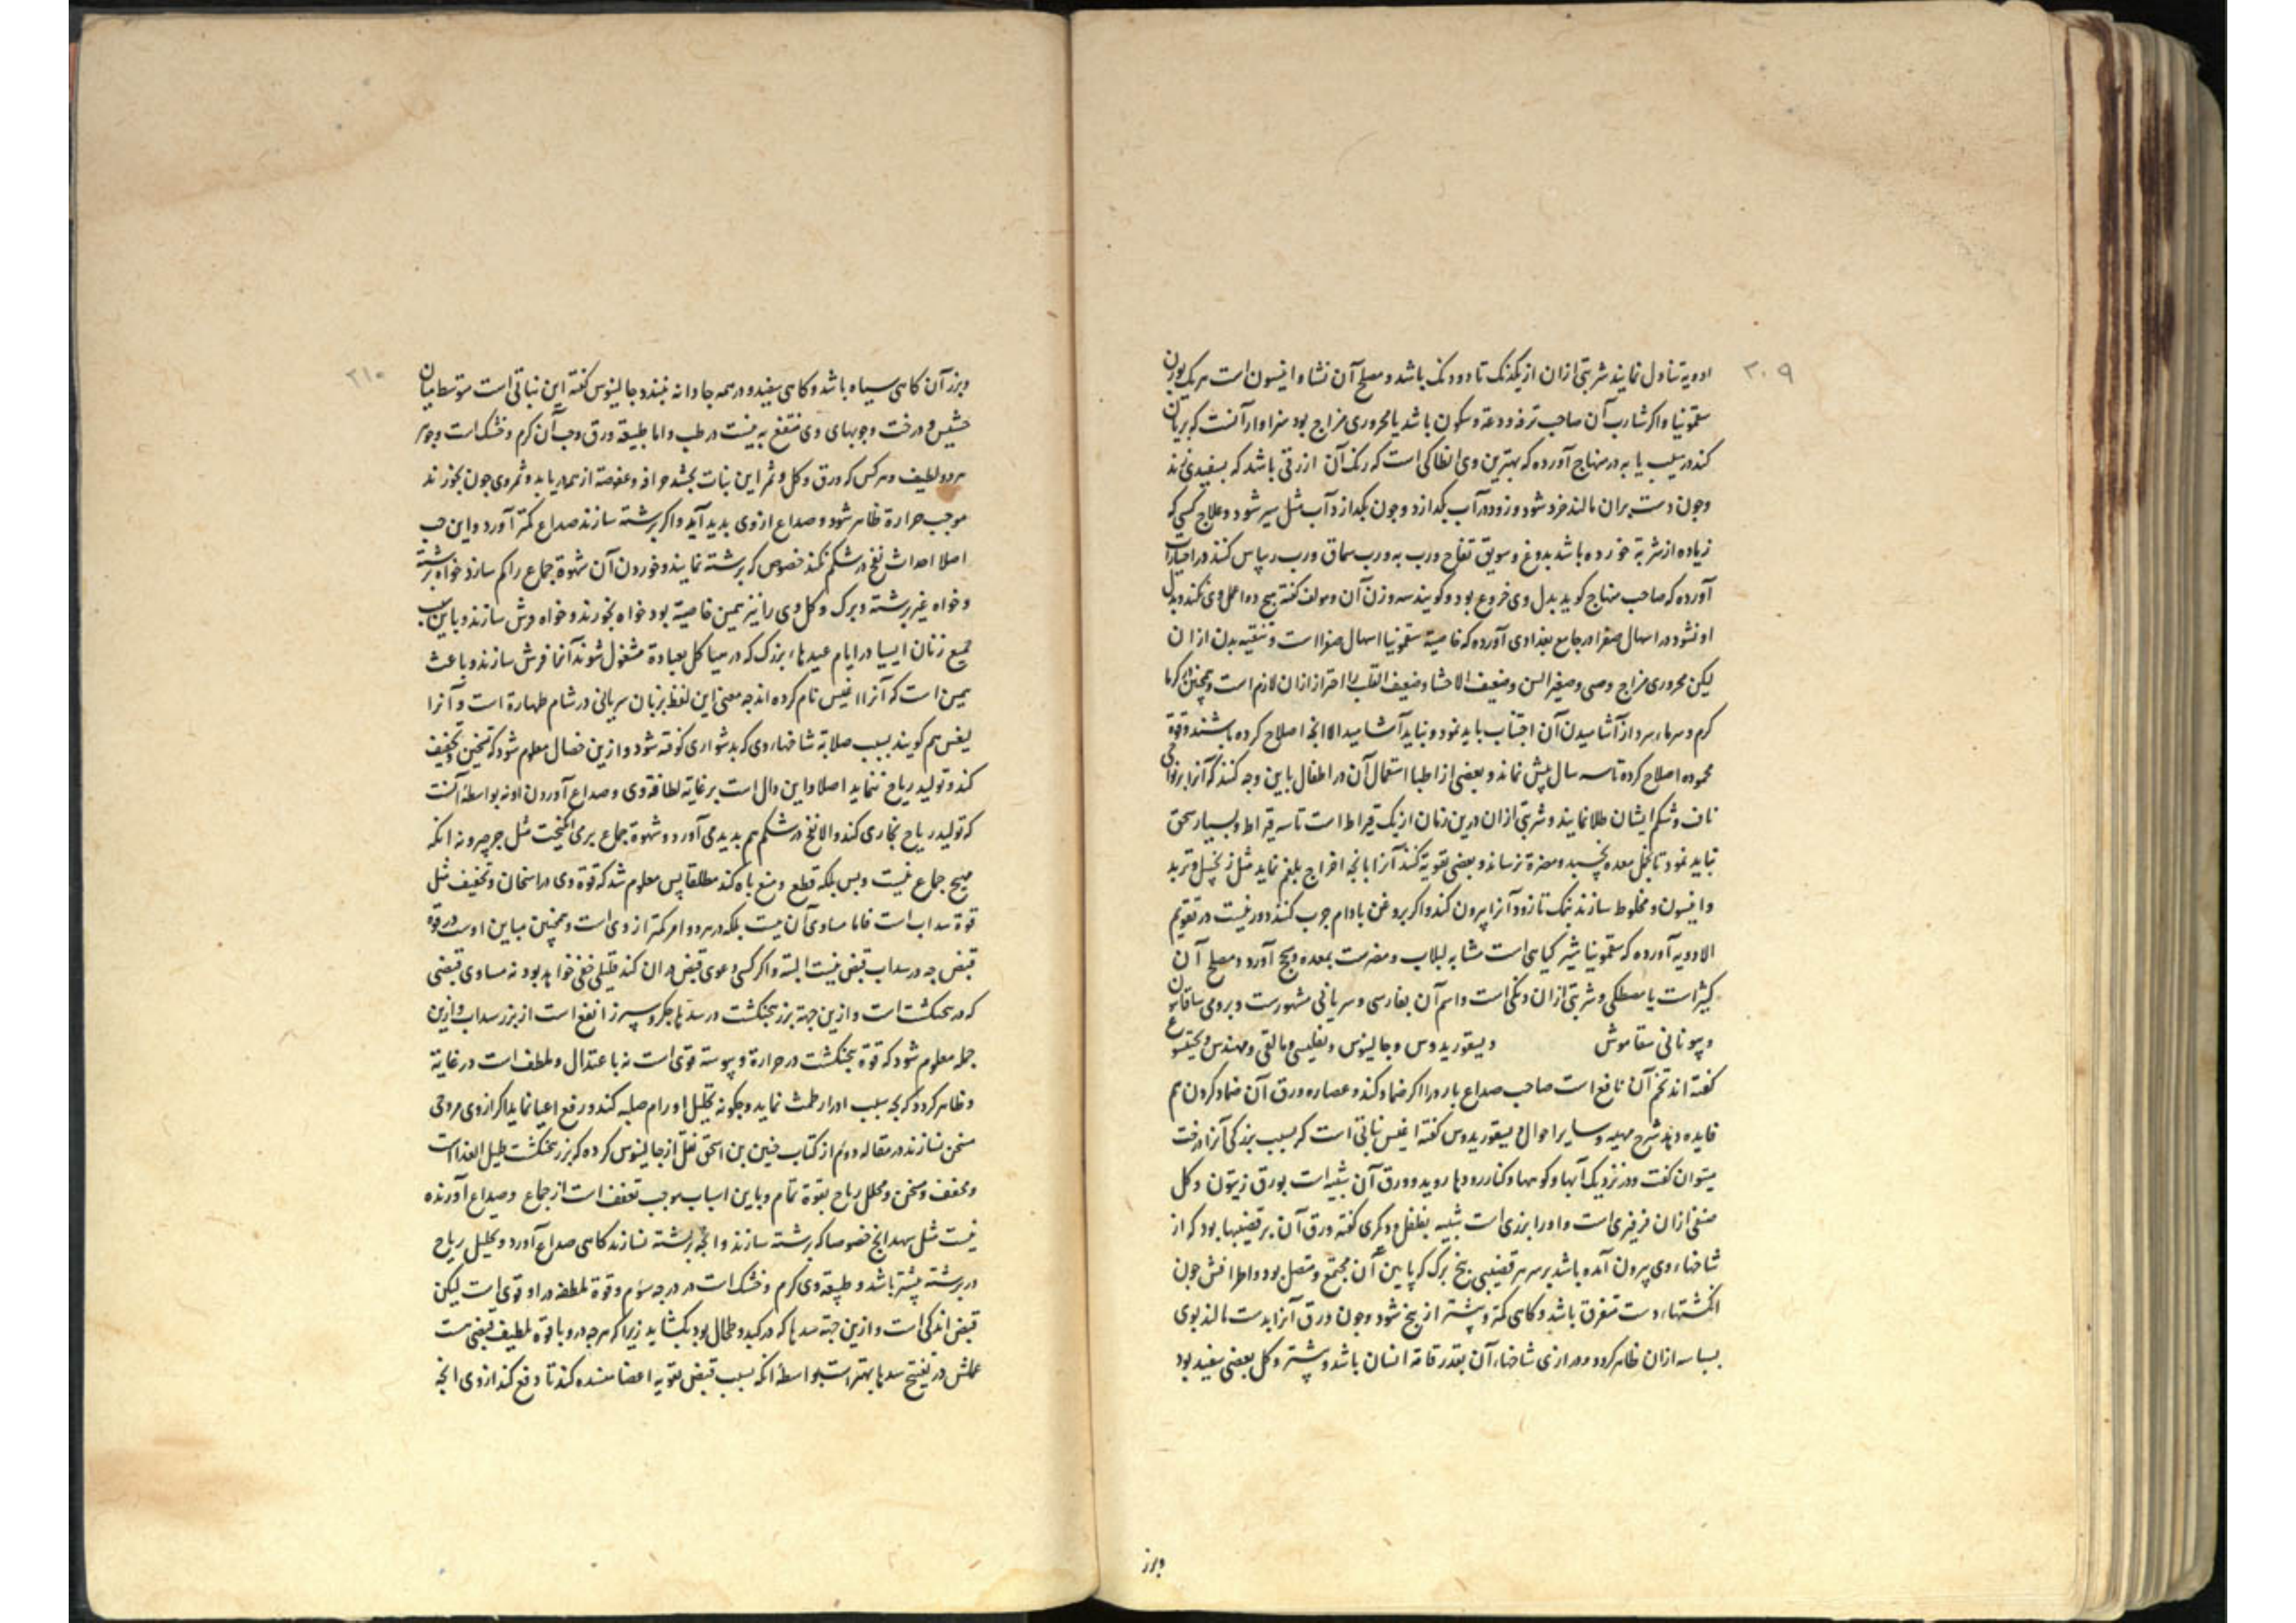 ۲۰۹
ادویه تناول نمایند شربتی ازان از یکدنک تا دو دنک باشد و مصلح آن نشا و انیسون است هر یک بوزن
سقمونیا و اکر شارب آن صاحب ترفه و دعة و سکون باشد یا محروری مزاج بود سزاوار آنست که بریان
کند در سیب یا به در منهاج آورده که بهترین وی انطاکی است که رنک آن ازرقی باشد که بسفیدی زند
و چون دست بران مالند خرد شود و زود در آب بکدازد و چون بکدازد آب مثل شیر شود و علاج کسی که
زیاده از شربة خورده باشد بدوغ و سویق تفاح و رب به و رب سماق و رب ریباس کنند در اختیارات
آورده که صاحب منهاج کوید بدل وی خروع بود و کویند سه وزن آن و مولف کفته هیچ دوا عمل وی نکند و بدل
او نشود در اسهال صفرا در جامع بغدادی آورده که خاصیة سقمونیا اسهال صفرا است و تنقیه بدن ازان
لیکن محروری مزاج و صبی و صغیر السن و ضعیف الاحشا و ضعیف القلب را احتراز ازان لازم است و همچنین در کرما
کرم و سرماء سرد از آشامیدن آن اجتناب باید نمود و نباید آشامید الا انچه اصلاح کرده باشند و قوة
محموده اصلاح کرده تا سه سال بیش نماند و بعضی از اطبا استعمال آن در اطفال باین وجه کنند که آنرا بر نواحی
ناف و شکم ایشان طلا نمایند و شربتی ازان درین زمان از یک قیراط است تا سه قیراط و بسیار سحق
نباید نمود تا بخمل معده نچسبد و مضرة نرساند و بعضی تقویة کنند آنرا بانچه اخراج بلغم نماید مثل زنجبیل و تربد
و انیسون و مخلوط سازند بنمک تا زود آنرا بیرون کند و اکر بروغن بادام چرب کنند دور نیست در تقویم
الادویه آورده که سقمونیا شیر کیاهی است مشابه لبلاب و مضرست بمعده و سحج آورد و مصلح آن
کثیرا است یا مصطکی و شربتی ازان دنکی است و اسم آن بفارسی و سریانی مشهورست و برومی ساقابین
و بیونانی سقاموش دیسقوریدوس و جالینوس و تفلیسی و مالقی و مهندس و بختیشوع
کفته اند تخم آن نافع است صاحب صداع بارد را اکر ضماد کند و عصاره ورق آن ضماد کردن هم
فایده دهد شرح مهیه و سایر احوال دیسقوریدوس کفته اغیس نباتی است که بسبب بزرکی آنرا درخت
میتوان کفت و در نزدیک آبها و کوهها و کنار رودها روید و ورق آن شبیه است بورق زیتون و کل
صنفی ازان فرفیری است و اورا بزری است شبیه بفلفل و دیکری کفته ورق آن بر قضیبها بود که از
شاخهاء وی بیرون آمده باشد بر سر هر قضیبی پنج برک که پایین آن مجتمع و متصل بود و اطرافش چون
انکشتهاء دست متفرق باشد و کاهی کمتر و بیشتر از پنج شود و چون ورق آنرا بدست مالند بوی
بسباسه ازان ظاهر کردد و درازی شاخهاء آن بقدر قامة انسان باشد و بیشتر و کل بعضی سفید بود
وبزر
۲۱۰
و بزر آن کاهی سیاه باشد و کاهی سفید و در همه جا دانه نبندد جالینوس کفته این نباتی است متوسط میان
حشیش و درخت و چوبهای وی منتفع به نیست در طب و اما طبیعة ورق و حب آن کرم و خشک است و جوهر
هر دو لطیف و هر کس که ورق و کل و ثمر این نبات بچشد حرافة و عفوصة از همه دریابد و ثمر وی چون بخورند
موجب حرارة ظاهر شود و صداع ازوی بدید آید و اکر برشته سازند صداع کمتر آورد و این حب
اصلا احداث نفخ در شکم نکند خصوص که برشته نمایند و خوردن آن شهوة جماع را کم سازد خواه برشته
و خواه غیر برشته و برک و کل وی را نیز همین خاصیة بود خواه بخورند و خواه فرش سازند و باین سبب
جمیع زنان ایسیا در ایام عیدهاء بزرک که در هیاکل بعبادة مشغول شوند آنها فرش سازند و باعث
همین است که آنرا اغیس نام کرده اند چه معنی این لفظ بزبان سریانی در شام طهارة است و آنرا
لیغس هم کویند بسبب صلابة شاخهاء وی که بدشواری کوفته شود و ازین خصال معلوم شود که تسخین و تجفیف
کند و تولید ریاح ننماید اصلا و این دال است بر غایة لطافة وی و صداع آوردن او نه بواسطه آنست
که تولید ریاح بخاری کند و الا نفخ در شکم هم بدید می آورد و شهوة جماع برمی انکیخت مثل جرجیر و نه انکه
مهیج جماع نیست و بس بلکه قطع و منع باه کند مطلقا پس معلوم شد که قوة وی در اسخان و تجفیف مثل
قوة سداب است فاما مساوی آن نیست بلکه در هر دو امر کمتر از وی است و همچنین مباین اوست در قوة
قبض چه در سداب قبض نیست البته و اکر کسی دعوی قبض دران کند قلیلی خفی خواهد بود نه مساوی قبضی
که در بنجنکشت است و ازین جهة بزر بنجنکشت در سدّهاء جکر و سپرز انفع است از بزر سداب و ازین
جمله معلوم شود که قوة بنجنکشت در حرارة و یبوسة قوی است نه باعتدال و ملطف است در غایة
و ظاهر کردد که بچه سبب ادرار طمث نماید و چکونه تحلیل اورام صلبه کند و رفع اعیا نماید اکر ازوی مروخی
مسخن سازند در مقاله دوم از کتاب حنین بن اسحق نقل از جالینوس کرده که بزر بنجنکشت قلیل الغذا است
و مجفف و مسخن و محلل ریاح بقوة تمام و باین اسباب موجب تعفف است از جماع و صداع آورنده
نیست مثل شهدانج خصوصا که برشته سازند و انچه برشته نسازند کاهی صداع آورد و تحلیل ریاح
در برشته بیشتر باشد و طبیعة وی کرم و خشک است در درجه سوم و قوة ملطفه در او قوی است لیکن
قبض اندکی است و ازین جهة سدها که در کبد و طحال بود بکشاید زیرا که هر چه درو با قوة لطیف قبضی هست
عملش در تفتیح سدها بهتر است بواسطه انکه بسبب قبض تقویة اعضا منسده کند تا دفع کند ازوی انچه